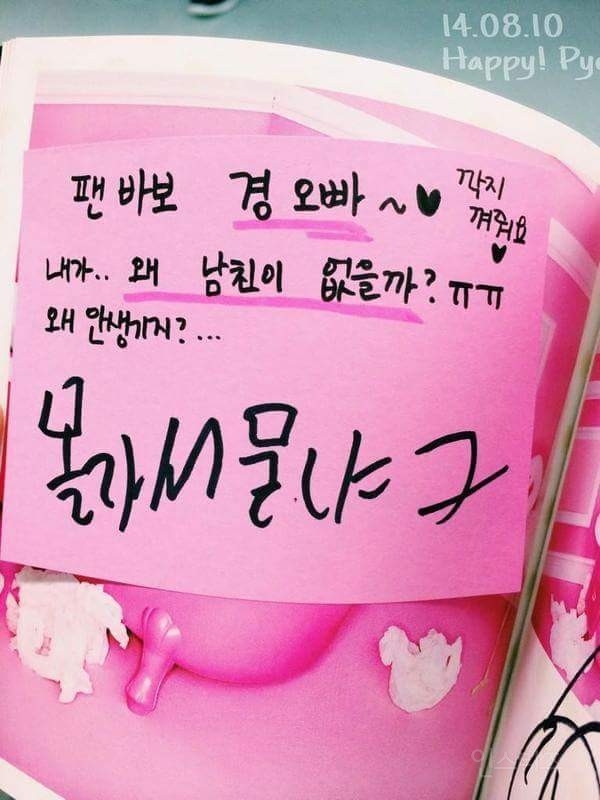 14.08.10
Happy! Pyo
팬 바보 경 오빠 ~ ♥
깍지
껴줘요
♥
내가.. 왜 남친이 없을까? ㅠㅠ
왜 안생기지?...
몰라서 묻냐 그
인스티즈